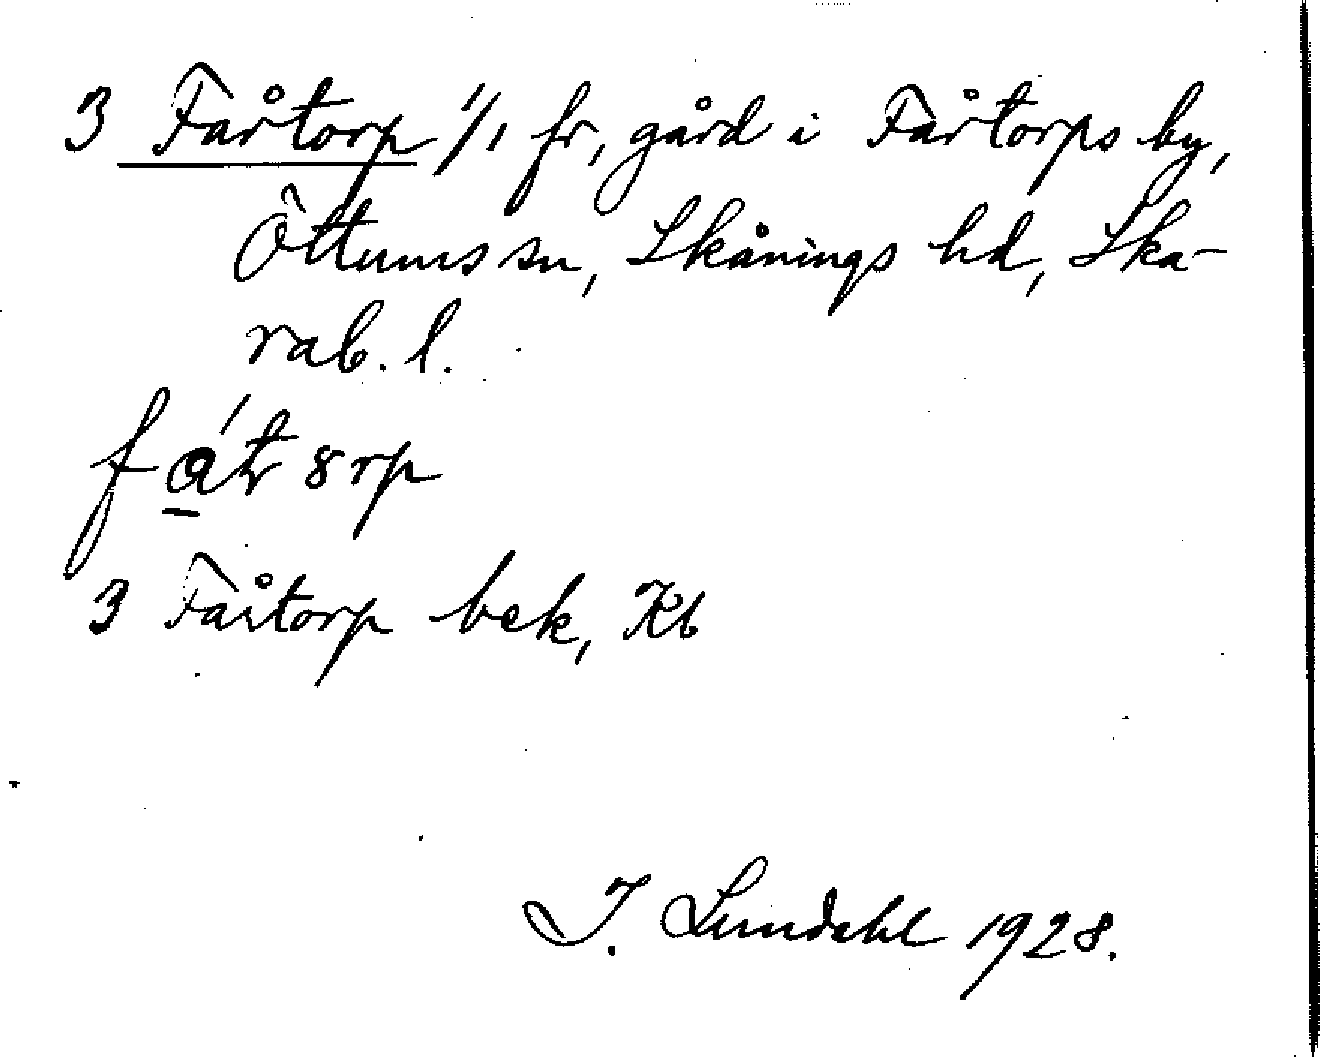 3 Fårtorp 1/1 fr, gård i Fårtorps by,
Öttums sn, Skånings hd, Ska-
rab. l.
3 Fårtorp bek, Kb
I. Lundahl 1928.